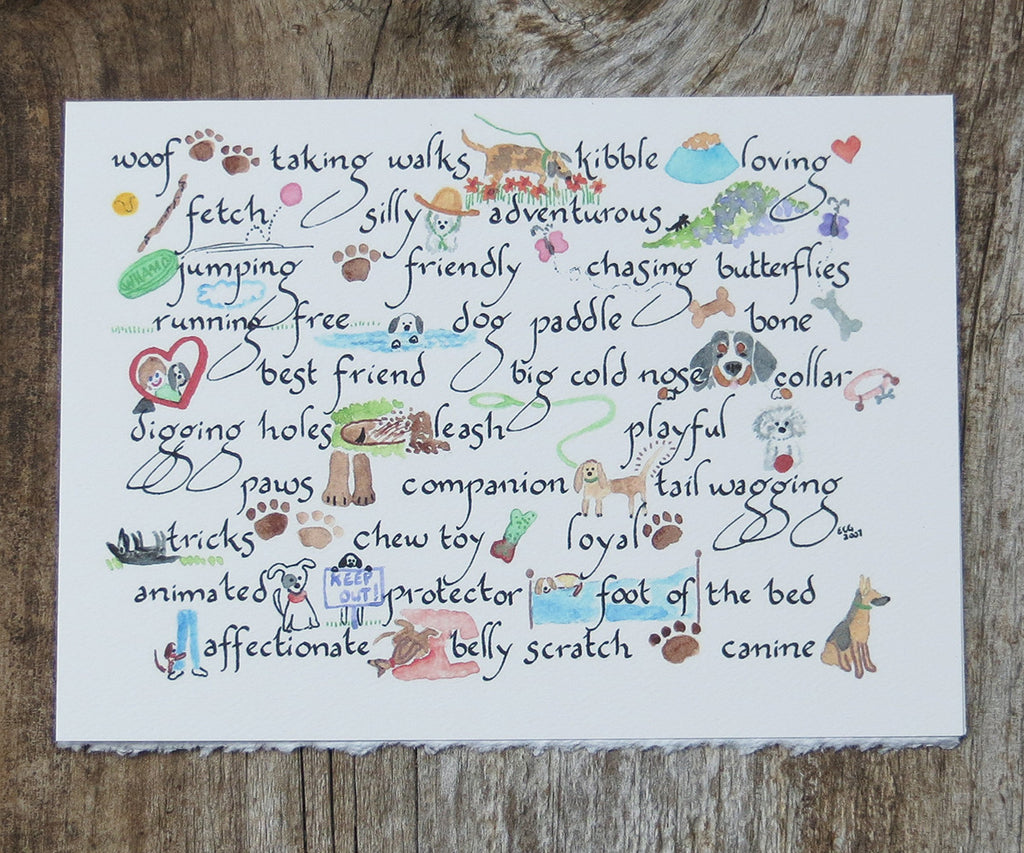 woof taking walks kibble loving
fetch silly adventurous
WHAMO
jumping friendly chasing butterflies
running free dog paddle bone
best friend big cold nose collar
digging holes leash playful
paws companion tail wagging
tricks chew toy loyal
2001
animated KEEP OUT! protector foot of the bed
affectionate belly scratch canine